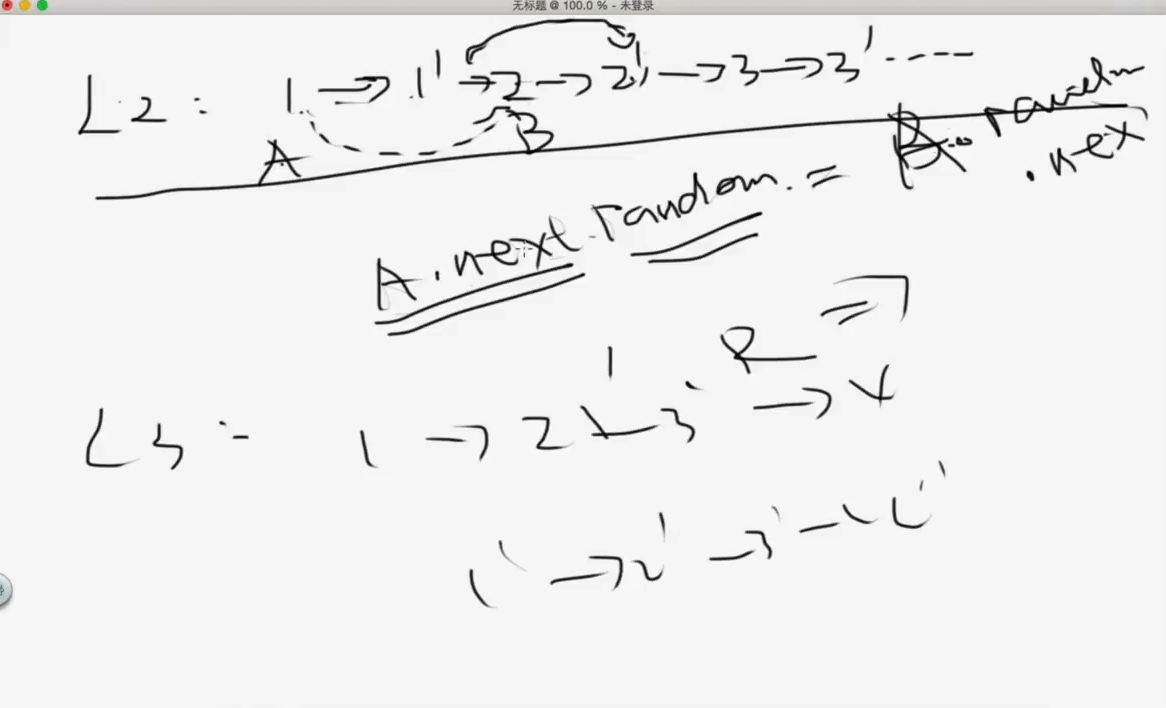 无标题 @ 100.0 % - 未登录
L2: 1 → 1' → 2 → 2' → 3 → 3' ----
A B
A.next.random = A.random
.next
L3:- 1 → 2 3
R
1' → 2' → 3'